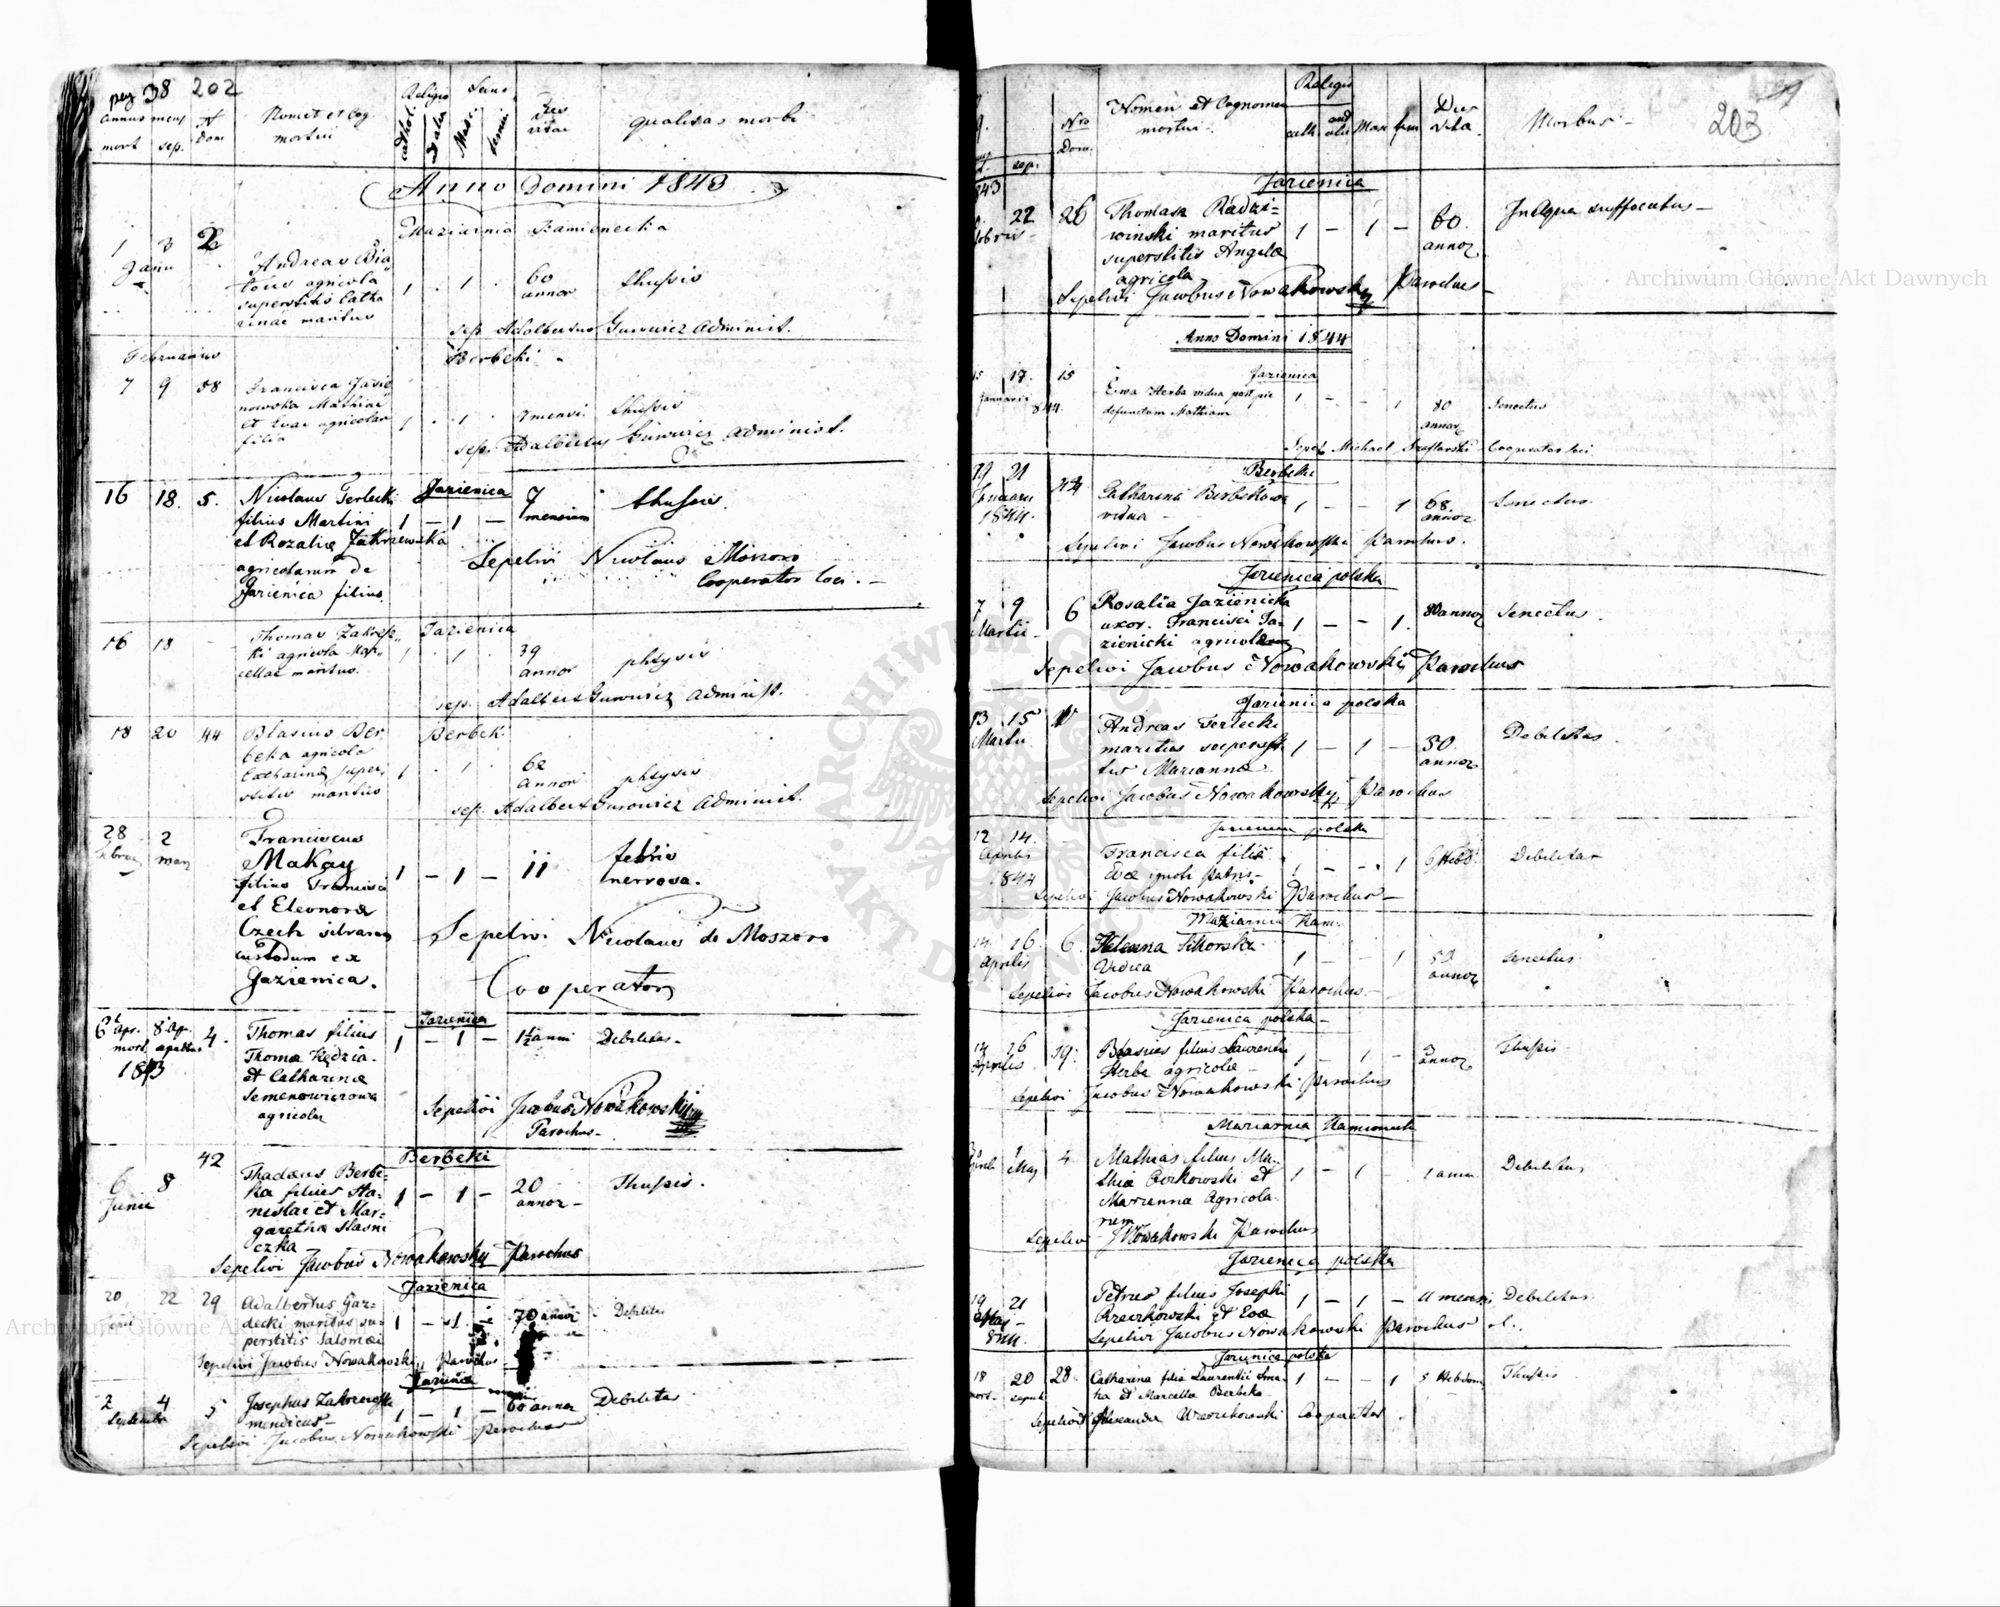 pag 38 202
annus mens N
mort sep. dom
Nomen et Cog
mortui
Religio
cathol
Sexus
Masc
femini
vitae
qualitas morbi
Anno Domini 1843
Maziarnia Kamienecka
1 3 2
Janu
Andreas
agricola
superstitis Catha
rinae maritus
1 . 1 .
60
annor
thussis
sep. Adalbertus Gurowicz Administ.
Februarius
Berbeki
7 9 58
Francisca Jasie
nowska Mathiae
et Evae agricolar
filia
1 . 1 .
7 mensi.
thussis
sep. Adalbertus Gurowicz Administ.
16 18. 5.
Jazienica
Nicolaus Terlecki
filius Martini
et Rozaliæ Zakrzewska
agricolarum de
Jazienica filius.
1 – 1 –
7
mensium
thussis.
Sepelivi Nicolaus Moszoro
Cooperator loci. –
16 18 –
Jazienica
Thomas Zakrzews
ki agricola Mar
cellae maritus.
1 . 1 .
39
annor
phtysis
sep. Adalbert Gurowicz Administ.
18 20 44
Berbek
Blasius Ber
beka agricola
Catharinæ super
stitis maritus
1 . 1 .
62
annor
phtysis
sep. Adalbert Gurowicz Administ.
28 2
Februar mar
Franciscus
Makay
filius Francisci
et Eleonoræ
Czech silvarum
custodum ex
Jazienica.
1 – 1 – 11
febris
nervosa.
Sepelivi Nicolaus de Moszoro
Cooperator
6 Apr. 8 Apr. 4.
mort. sepultus
1843
Jazienica
Thomas filius
Thoma Kędzia
et Catharinæ
Semenowiczowa
agricolar
1 – 1 – 1½ anni Debilitas –
Sepelivi Jacobus Nowakowski
Parochus –
6 8 42
Junii
Berbeki
Thadæus Berbe-
ka filius Sta-
nislai et Mar-
garethæ Slasni
czka
1 – 1 –
20
annor –
Thussis.
Sepelivi Jacobus Nowakowsky Parochus
Jazienica
20 22 29
Adalbertus Gaz-
decki maritus su-
perstitis Salomæ
1 – 1 –
70 annor
Debilitas
Sepelivi Jacobus Nowakowski Parochus
Jazienica
2 4 5
Septembr
Josephus Zakrzewski
mendicus –
1 – 1 –
60 annor
Debilitas
Sepelivi Jacobus Nowakowski parochus
203
Nro
Dom.
sep.
Nomen et Cognomen
mortui.
Religio
cath. aut alia Mas fem
Vita.
Morbus –
843
Jazienica
22 26
Thomasz Radzi=
winski maritus
superstitis Angelæ
agricola
1 – 1 –
60.
annor
In Aqua suffocatus –
Sepelivi Jacobus Nowakowsky Parochus –
Anno Domini 1844
Jazienica
15 17. 15
Januarii
844.
Ewa Herba vidua post pie
defunctum Mathiam
1 – – 1
80
annor
Senectus
Sepel. Michael Szaflarski Cooperator loci
Berbeki
21 44
Januarii
1844.
Catharina Berbekowa
vidua –
1 – – 1
68.
annor
Senectus.
Sepelivi Jacobus Nowakowski Parochus.
Jazienica polska
7 9 6
Martii –
Rosalia Jazienicka
uxor. Francisci Ja-
zienicki agricolæ
1 – – 1.
80 annor
Senectus.
Sepelivi Jacobus Nowakowski Parochus
Jazienica polska
13 15
Martii
Andreas Terlecki
maritus superst.
tis Marianna
1 – 1 –
50.
annor
Debilitas.
Sepelivi Jacobus Nowakowsky Parochus
Jazienica polska
12 14
Aprilis
1844
Francisca filia
Evæ ignoti Patris –
1 – – 1
6 Hebd.
Debilitas
Sepelivi Jacobus Nowakowski Parochus –
Maziarnia Kam.
14 16. 6.
Aprilis
Helenna Sikorska
Vidua
1 – – 1
53
annor
Senectus
Sepelivi Jacobus Nowakowski Parochus. –
Jazienica polska –
14 26 19.
Aprilis
Blasius filius Laurentii
Herba agricolæ –
1 – 1 –
3
annor
Thussis
Sepelivi Jacobus Nowakowski Parochus
Maziarnia Kamionecka
1 4.
May
Mathias filius Ma-
thiæ Borkowski et
Marianna Agricola-
rum
1 – 1 –
1 anni
Debilitas
Sepelivi J Nowakowski Parochus
Jazienica polska
19 21
May –
844.
Petrus filius Josephi
Rzeczkowski et Evæ
1 – 1 –
11 mensi
Debilitas
Sepelivi Jacobus Nowakowski Parochus
Jazienica polska
18 20 28.
mort. sepult
Catharina filia Laurentii
et Marcella Berbeka
1 – – 1
5 Hebdom
Thussis
Sepelivit Alexander Cooperator.
Archiwum Główne Akt Dawnych
Archiwum Główne Akt Dawnych
ARCHIWUM GŁÓWNE AKT DAWNYCH